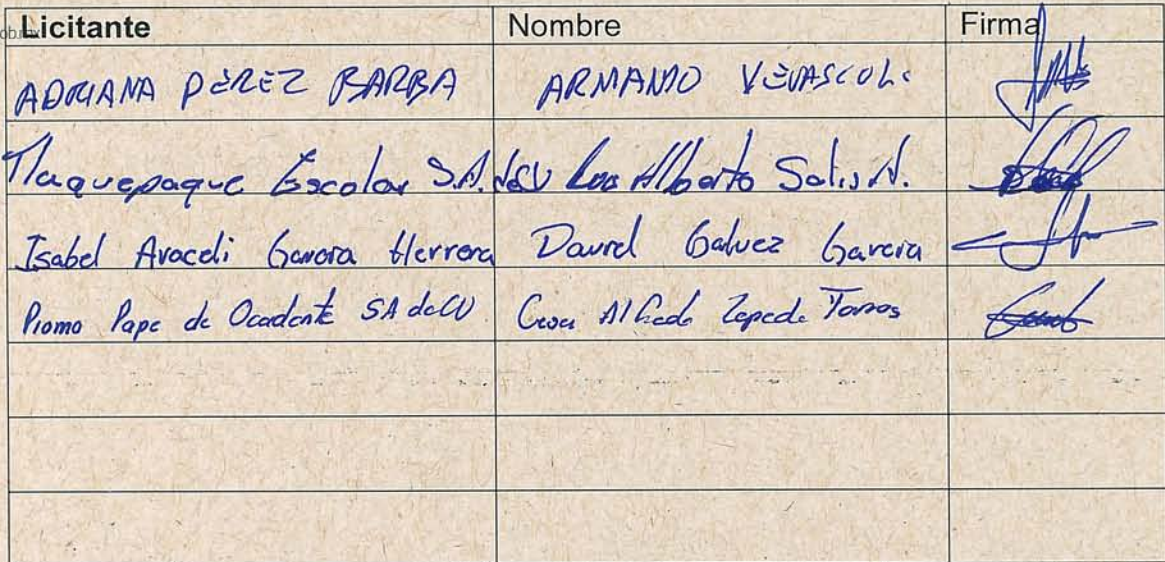 Licitante Nombre Firma
ADRIANA PÉREZ BARBA ARMANDO
Tlaquepaque Escolar S.A. de CV Luis Alberto Solis N.
Isabel Araceli Gamora Herrera David Galvez Garcia
Promo Pape de Occidente SA de CV Cesar Alfredo Zepeda Torres